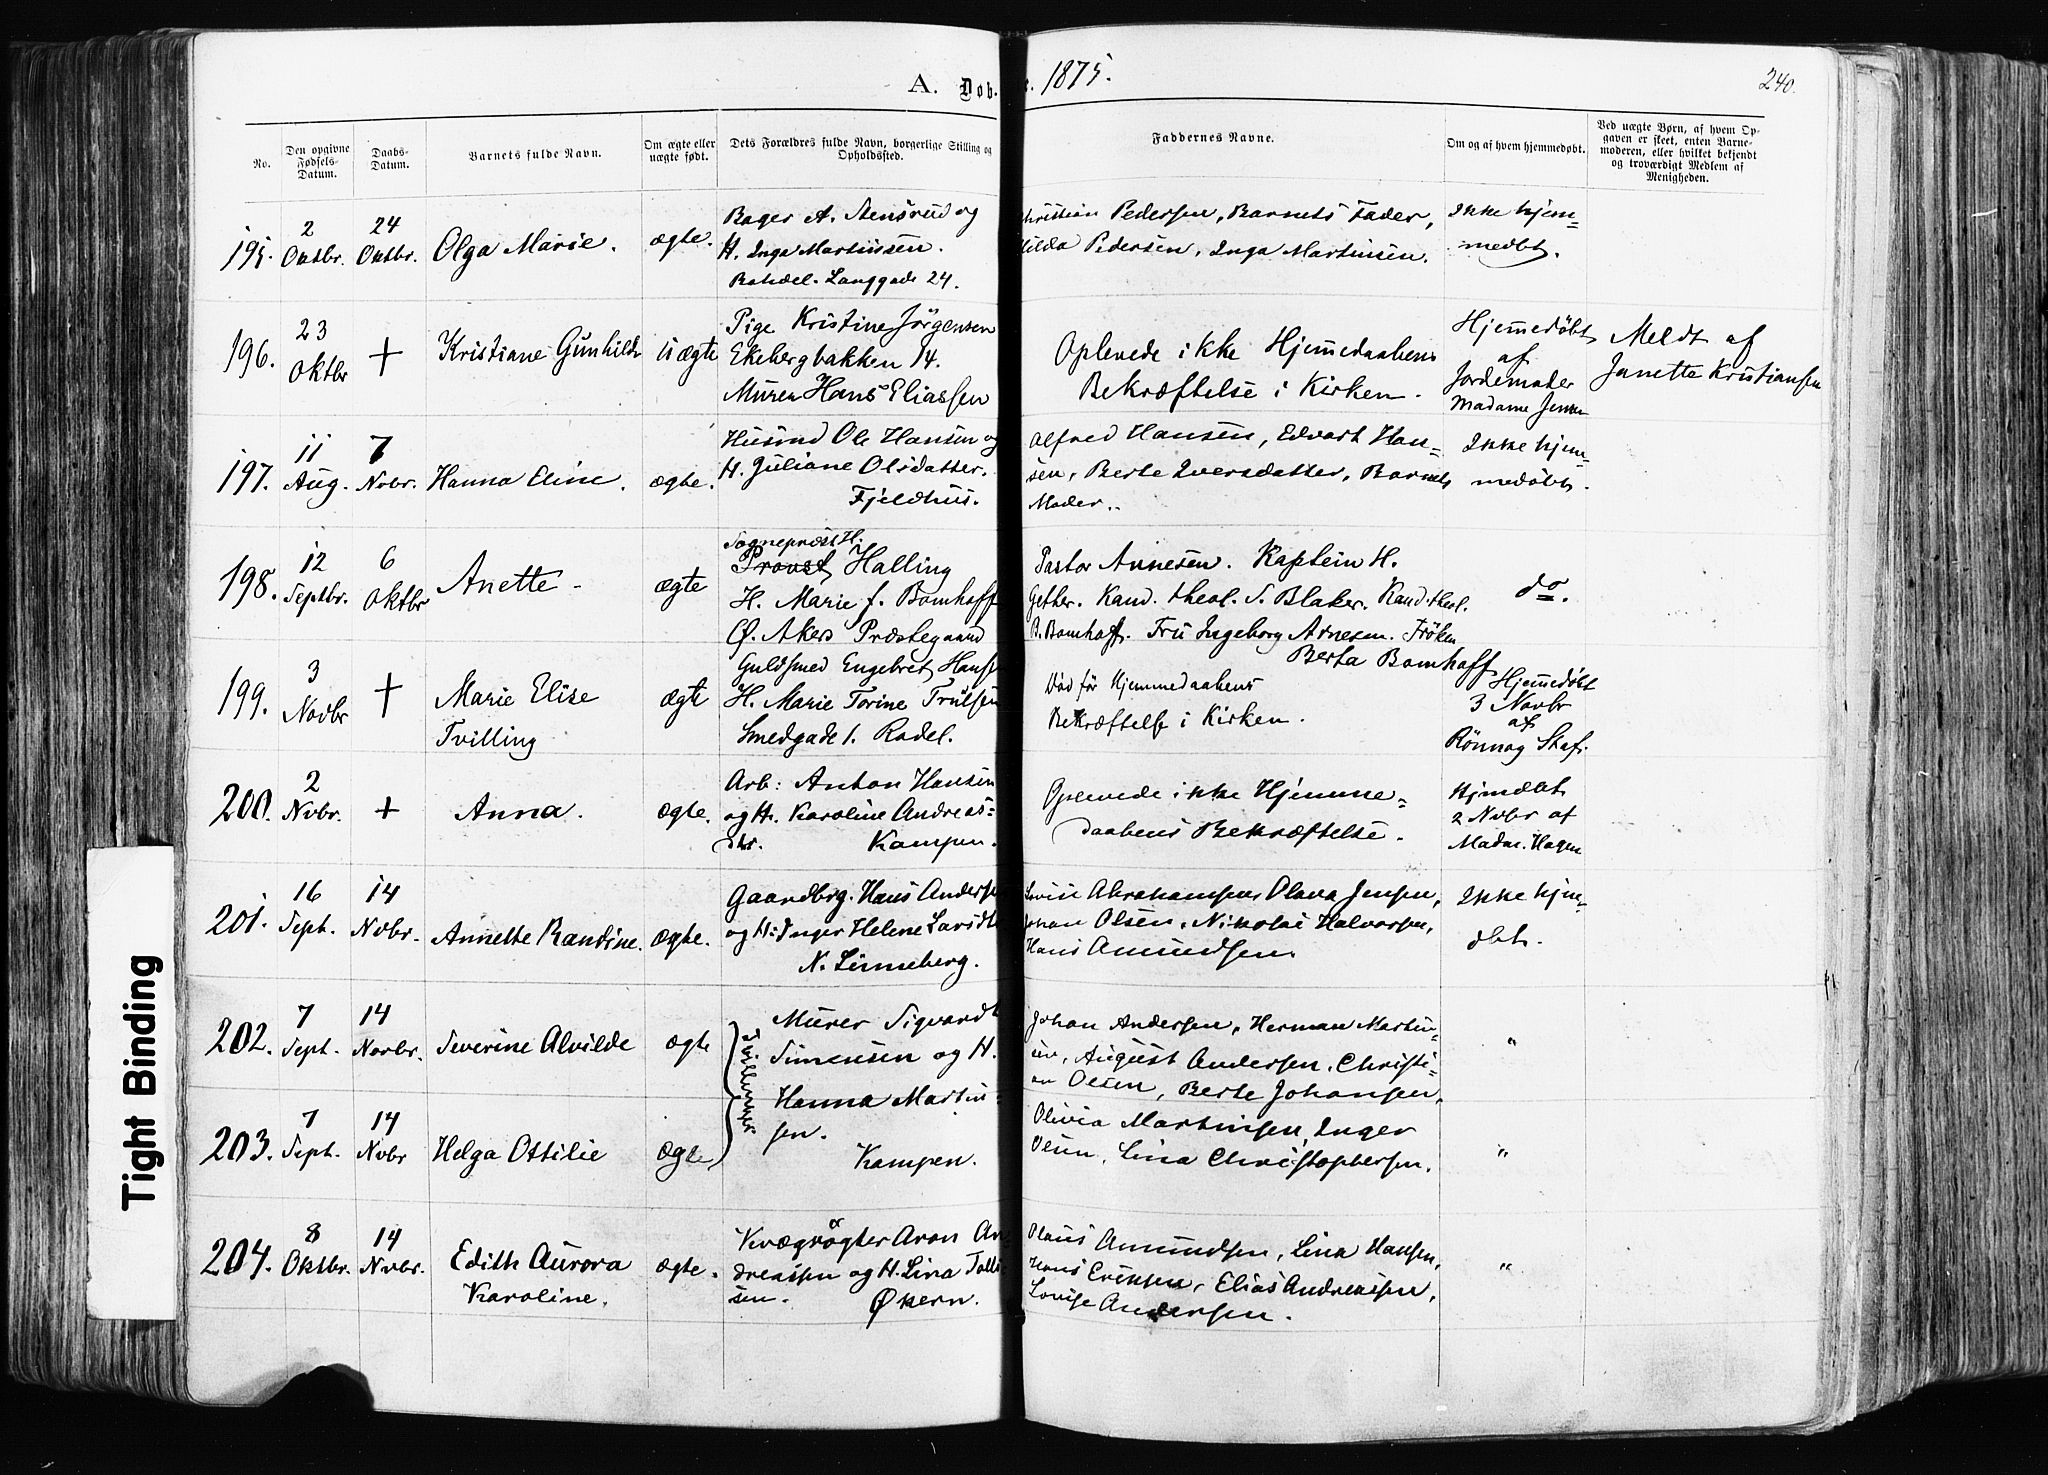 A. Døb. 1875.
240.
No.
Den opgivne Fødsels-Datum.
Daabs-Datum.
Barnets fulde Navn.
Om ægte eller uægte født.
Dets Forældres fulde Navn, borgerlige Stilling og Opholdssted.
Faddernes Navne.
Om og af hvem hjemmedøbt.
Ved uægte Børn, af hvem Opgaven er skeet, enten Barnemoderen, eller hvilket bekjendt og troværdigt Medlem af Menigheden.
195. 2 Oktbr. 24 Oktbr. Olga Marie. ægte.
Bager A. Stensrud og
H. Inga Martinsen.
Langgade 24.
Christian Pedersen, Barnets Fader,
Hilda Pedersen, Inga Martinsen.
Ikke hjem=
medbt.
196. 23 Oktbr + Kristiane Gunhilde uægte
Pige Kristine Jørgensen
Ekebergbakken 14.
Murer Hans Eliassen
Oplevede ikke Hjemmedaabens
Bekræftelse i Kirken.
Hjemmedøbt
af
Jordemoder
Madame Jensen
Meldt af
Janette Kristiansen
197. 11 Aug. 7 Novbr. Hanna Eline. ægte.
Husmd Ole Hansen og
H. Juliane Olsdatter.
Fjeldhus.
Alfred Hansen, Edvart Han=
sen, Berte Iversdatter, Barnets
Moder.
Ikke hjem=
medøbt.
198. 12 Septbr. 6 Oktbr Anette - ægte
Sognepræst H.
Provst Halling
H. Marie f. Bomhoff
Ø. Akers Præstegaard
Pastor Arnesen. Kaptein H.
Gether. Kand. theol. S. Blaker. Kand. theol.
B. Bomhoff. Fru Ingeborg Arnesen. Frøken
Berta Bomhoff
do.
199. 3 Novbr + Marie Elise ægte
Tvilling
Guldsmed Engebret Hansen
H. Marie Torine Trulsen
Smedgade 1. Rodel.
Død før Hjemmedaabens
Bekræftelse i Kirken.
Hjemmedøbt
3 Novbr
af
Rönnog Staf.
200. 2 Nvbr. + Anna. ægte.
Arb: Anton Hansen
og H. Karoline Andreas=
dtr. Kampen.
Oplevede ikke Hjemme=
daabens Bekræftelse.
Hjmdbt
2 Nvbr af
Madm. Hagen
201. 16 Sept. 14 Nvbr. Annette Randine. ægte.
Gaardbrg. Hans Andersen
og H: Inger Helene Larsdtr
N. Linneberg.
Lovise Abrahamsen, Olava Jensen,
Johan Olsen, Nikolai Halvorsen,
Hans Amundsen.
Ikke hjm=
dbt.
202. 7 Sept. 14 Novbr. Severine Alvilde ægte
Tvillinger.
Murer Sigvardt
Simensen og H.
Hanna Martin=
sen.
Kampen.
Johan Andersen, Herman Martin=
sen, August Andersen, Christi=
an Olsen, Berte Johansen,
"
203. 7 Sept. 14 Nvbr Helga Ottilie ægte
Olivia Martinsen, Inger
Olsen, Lina Christophersen.
"
204. 8 Oktbr. 14 Nvbr. Edith Aurora ægte.
Karoline.
Kvægrøgter Aron An
dreassen og H. Lina Tolli
sen. Økern.
Olaus Amundsen, Lina Hansen,
Hans Eriksen, Elias Andreassen,
Lovise Andersen.
"
Tight Binding